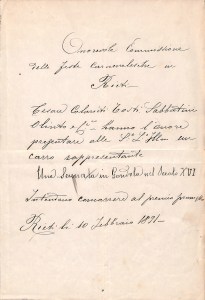 Onorevole Commissione
delle feste Carnevalesche in
Rieti
Cesare Colarieti Tosti Sabbatini
Olinto e C.ⁱ hanno l'onore
progettare alle S.ᵉ L.ᵉ Ill.ᵐᵉ un
carro rappresentante
Una Serenata in Gondola nel Secolo XVI
Intendono concorrere al premio
Rieti li 10 Febbraio 1891